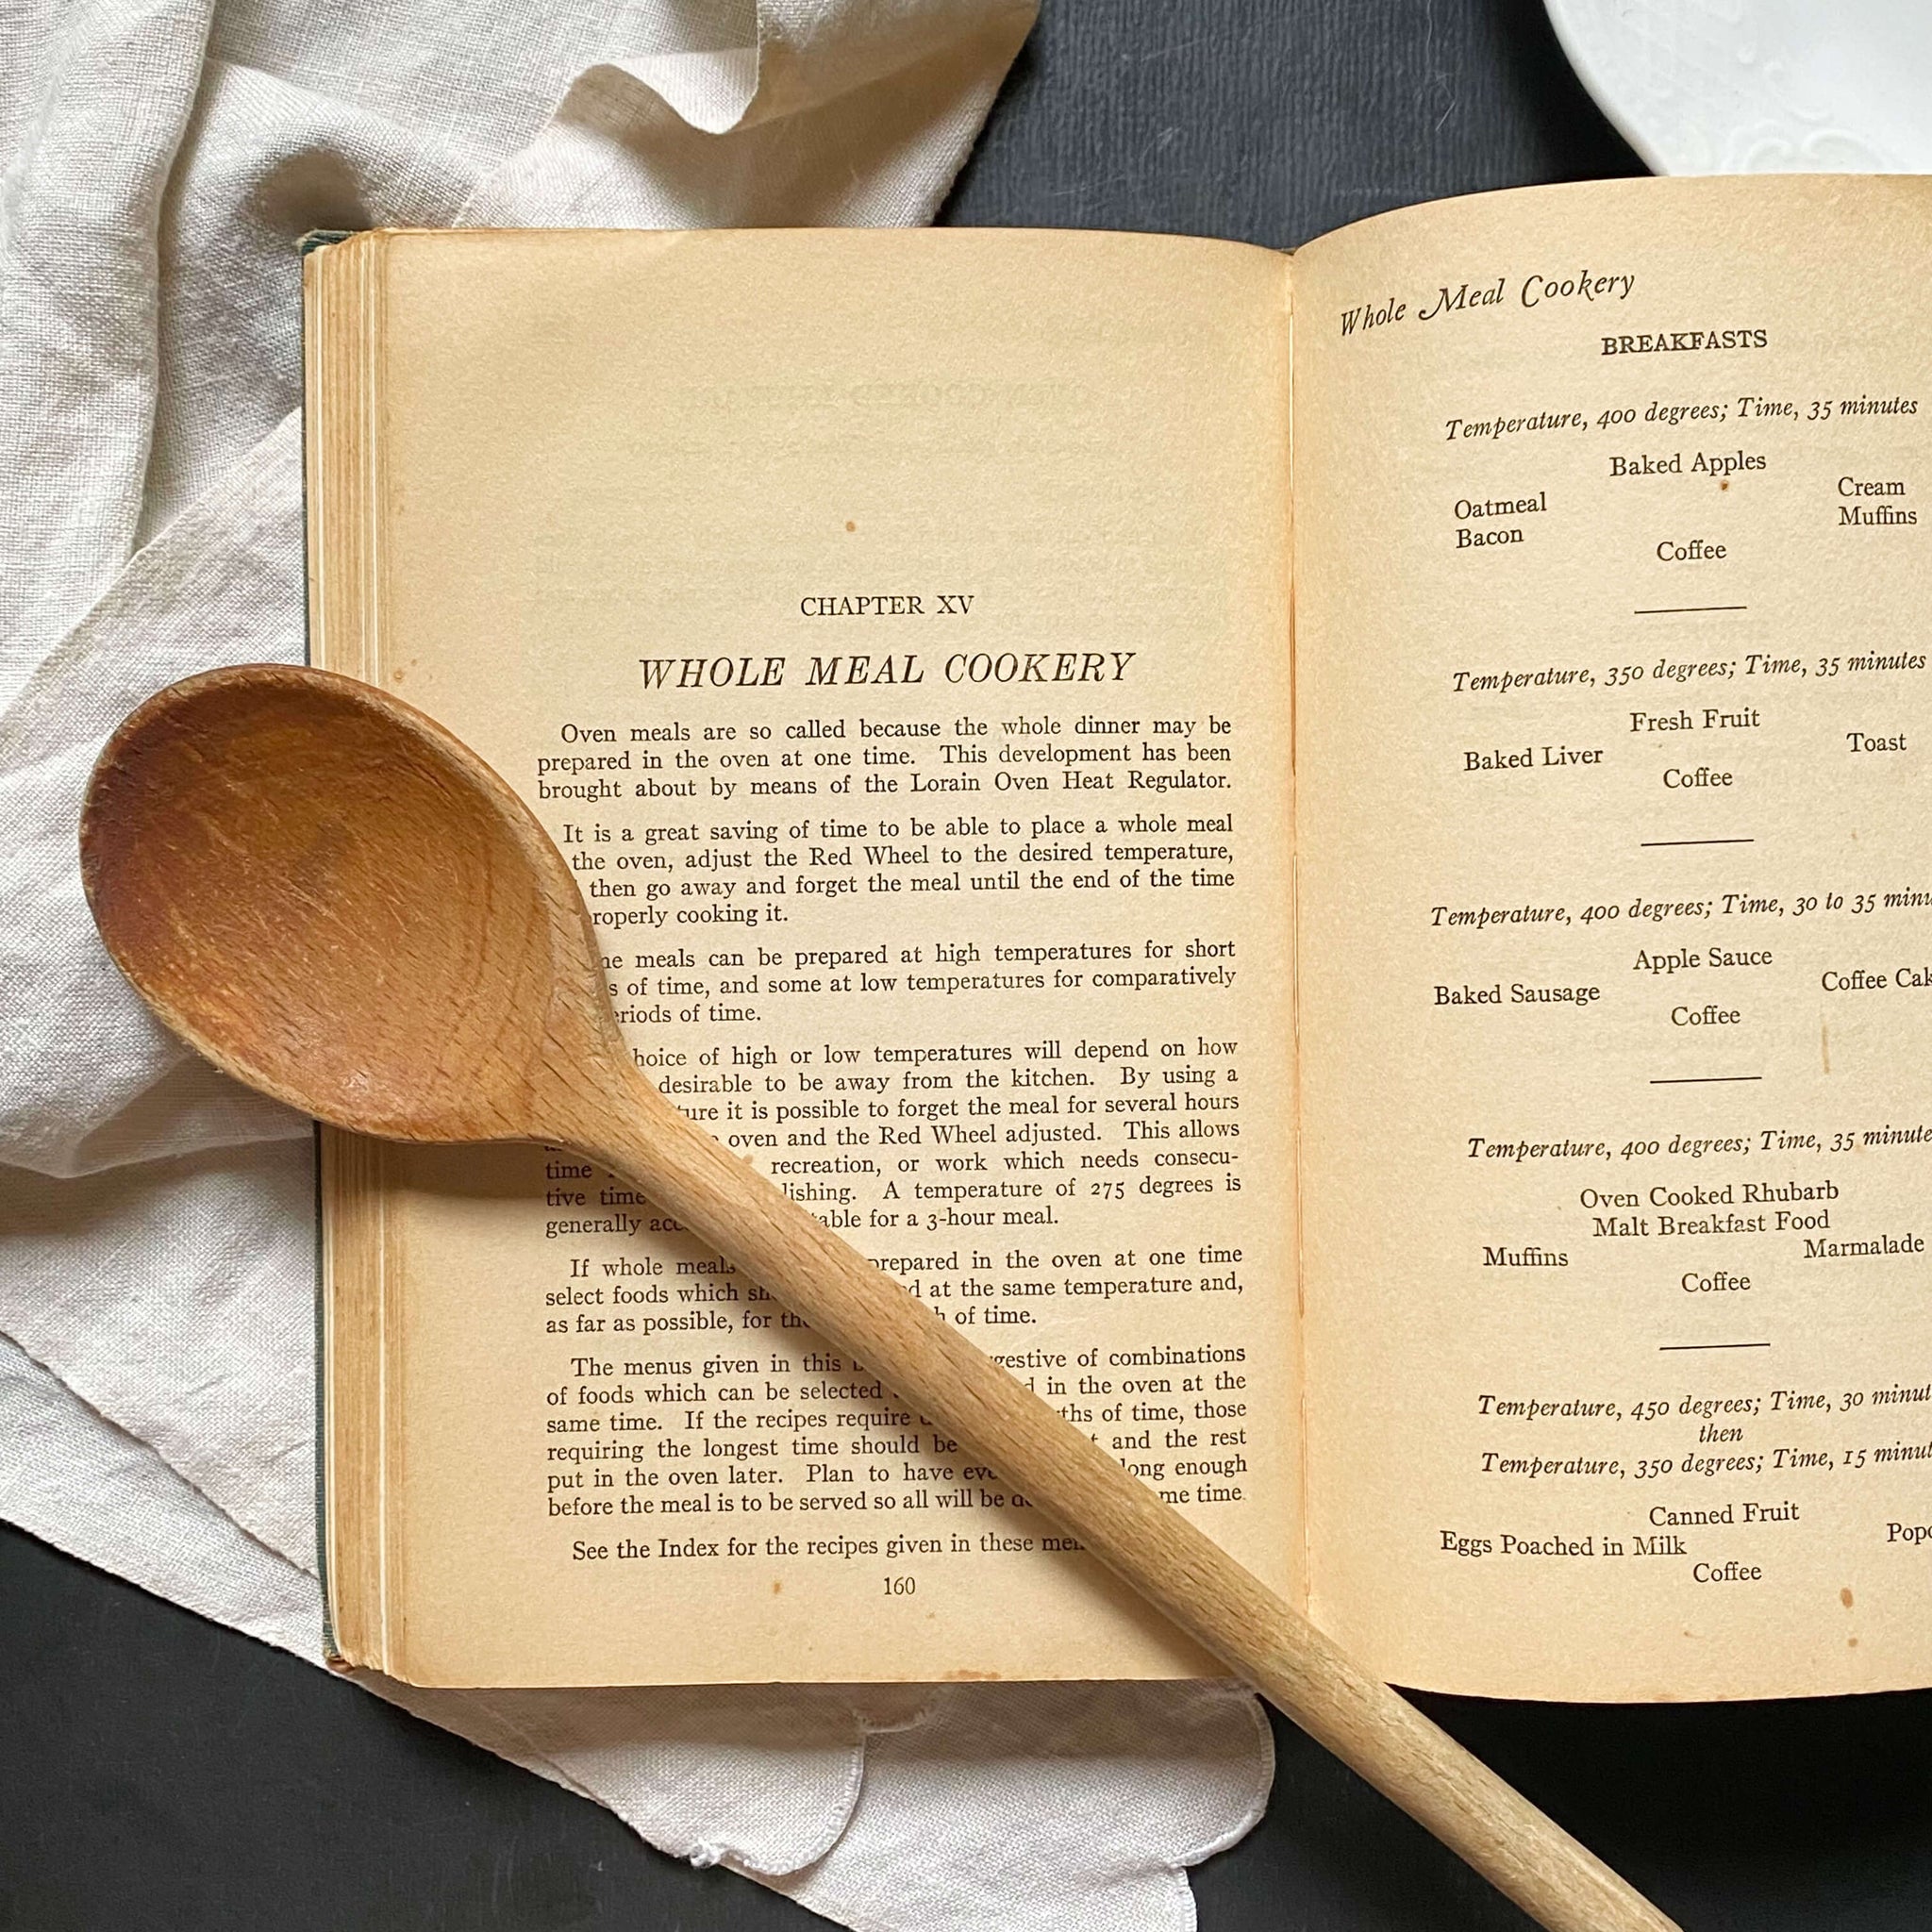 CHAPTER XV
WHOLE MEAL COOKERY
Oven meals are so called because the whole dinner may be
prepared in the oven at one time. This development has been
brought about by means of the Lorain Oven Heat Regulator.
It is a great saving of time to be able to place a whole meal
the oven, adjust the Red Wheel to the desired temperature,
then go away and forget the meal until the end of the time
cooking it.
meals can be prepared at high temperatures for short
of time, and some at low temperatures for comparatively
of time.
of high or low temperatures will depend on how
desirable to be away from the kitchen. By using a
it is possible to forget the meal for several hours
oven and the Red Wheel adjusted. This allows
time recreation, or work which needs consecu-
tive time A temperature of 275 degrees is
generally for a 3-hour meal.
If whole meals prepared in the oven at one time
select foods which at the same temperature and,
as far as possible, for of time.
The menus given in this of combinations
of foods which can be selected in the oven at the
same time. If the recipes require of time, those
requiring the longest time should be and the rest
put in the oven later. Plan to have long enough
before the meal is to be served so all will be time.
See the Index for the recipes given in these
160
Whole Meal Cookery
BREAKFASTS
Temperature, 400 degrees; Time, 35 minutes
Baked Apples
Oatmeal Cream
Bacon Muffins
Coffee
Temperature, 350 degrees; Time, 35 minutes
Fresh Fruit
Baked Liver Toast
Coffee
Temperature, 400 degrees; Time, 30 to 35
Apple Sauce
Baked Sausage Coffee
Coffee
Temperature, 400 degrees; Time, 35
Oven Cooked Rhubarb
Malt Breakfast Food
Muffins Marmalade
Coffee
Temperature, 450 degrees; Time, 30
then
Temperature, 350 degrees; Time, 15
Canned Fruit
Eggs Poached in Milk
Coffee